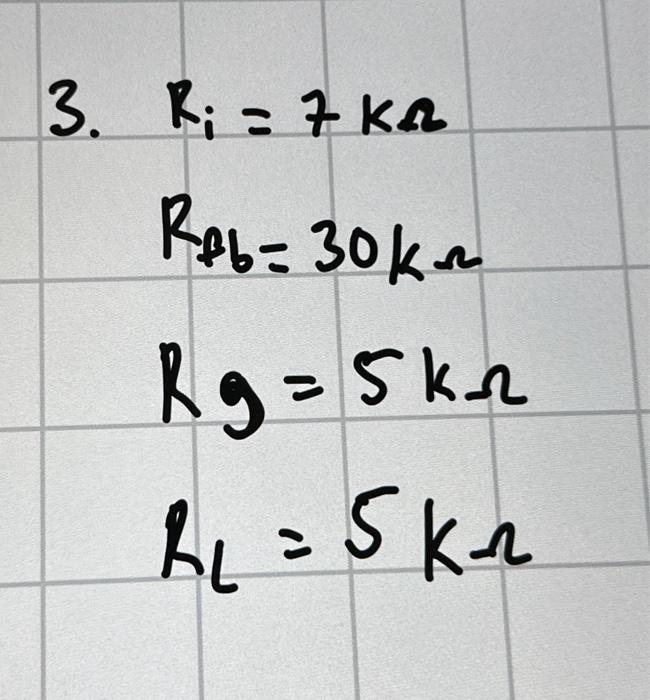 3. Ri = 7 kΩ
Rfb = 30 kΩ
Rg = 5 kΩ
RL = 5 kΩ